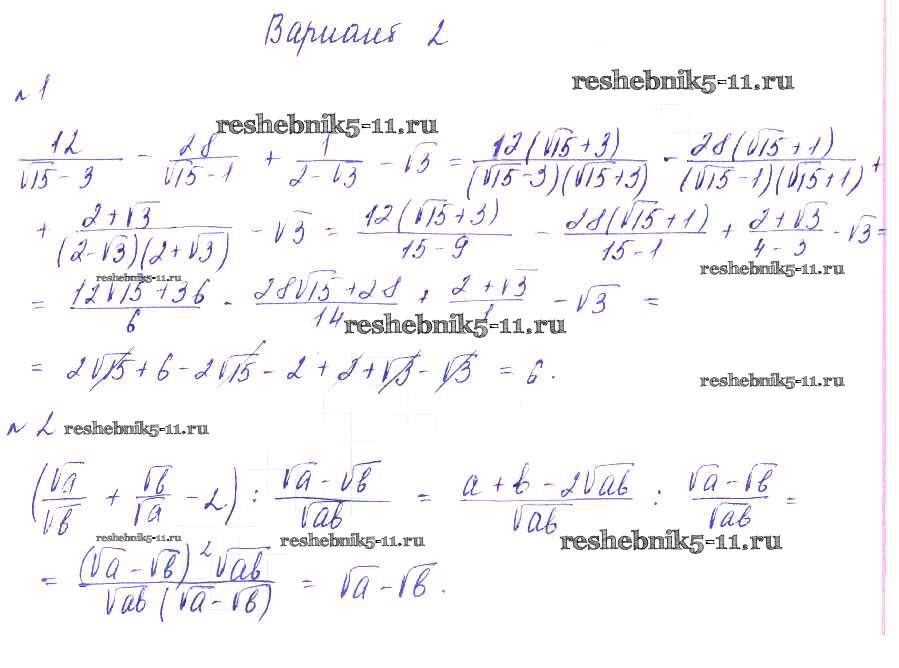 Вариант 2
reshebnik5-11.ru
№1
reshebnik5-11.ru
12/(√15 - 3) - 28/(√15 - 1) + 1/(2 - √3) - √3 = 12(√15 + 3)/((√15 - 3)(√15 + 3)) - 28(√15 + 1)/((√15 - 1)(√15 + 1)) +
+ (2 + √3)/((2 - √3)(2 + √3)) - √3 = 12(√15 + 3)/(15 - 9) - 28(√15 + 1)/(15 - 1) + (2 + √3)/(4 - 3) - √3 =
reshebnik5-11.ru reshebnik5-11.ru
= (12√15 + 36)/6 - (28√15 + 28)/14 + (2 + √3)/1 - √3 =
reshebnik5-11.ru
= 2√15 + 6 - 2√15 - 2 + 2 + √3 - √3 = 6.
reshebnik5-11.ru
№2 reshebnik5-11.ru
(√a/√b + √b/√a - 2) : (√a - √b)/√ab = (a + b - 2√ab)/√ab : (√a - √b)/√ab =
reshebnik5-11.ru reshebnik5-11.ru reshebnik5-11.ru
= (√a - √b)²√ab/(√ab(√a - √b)) = √a - √b.